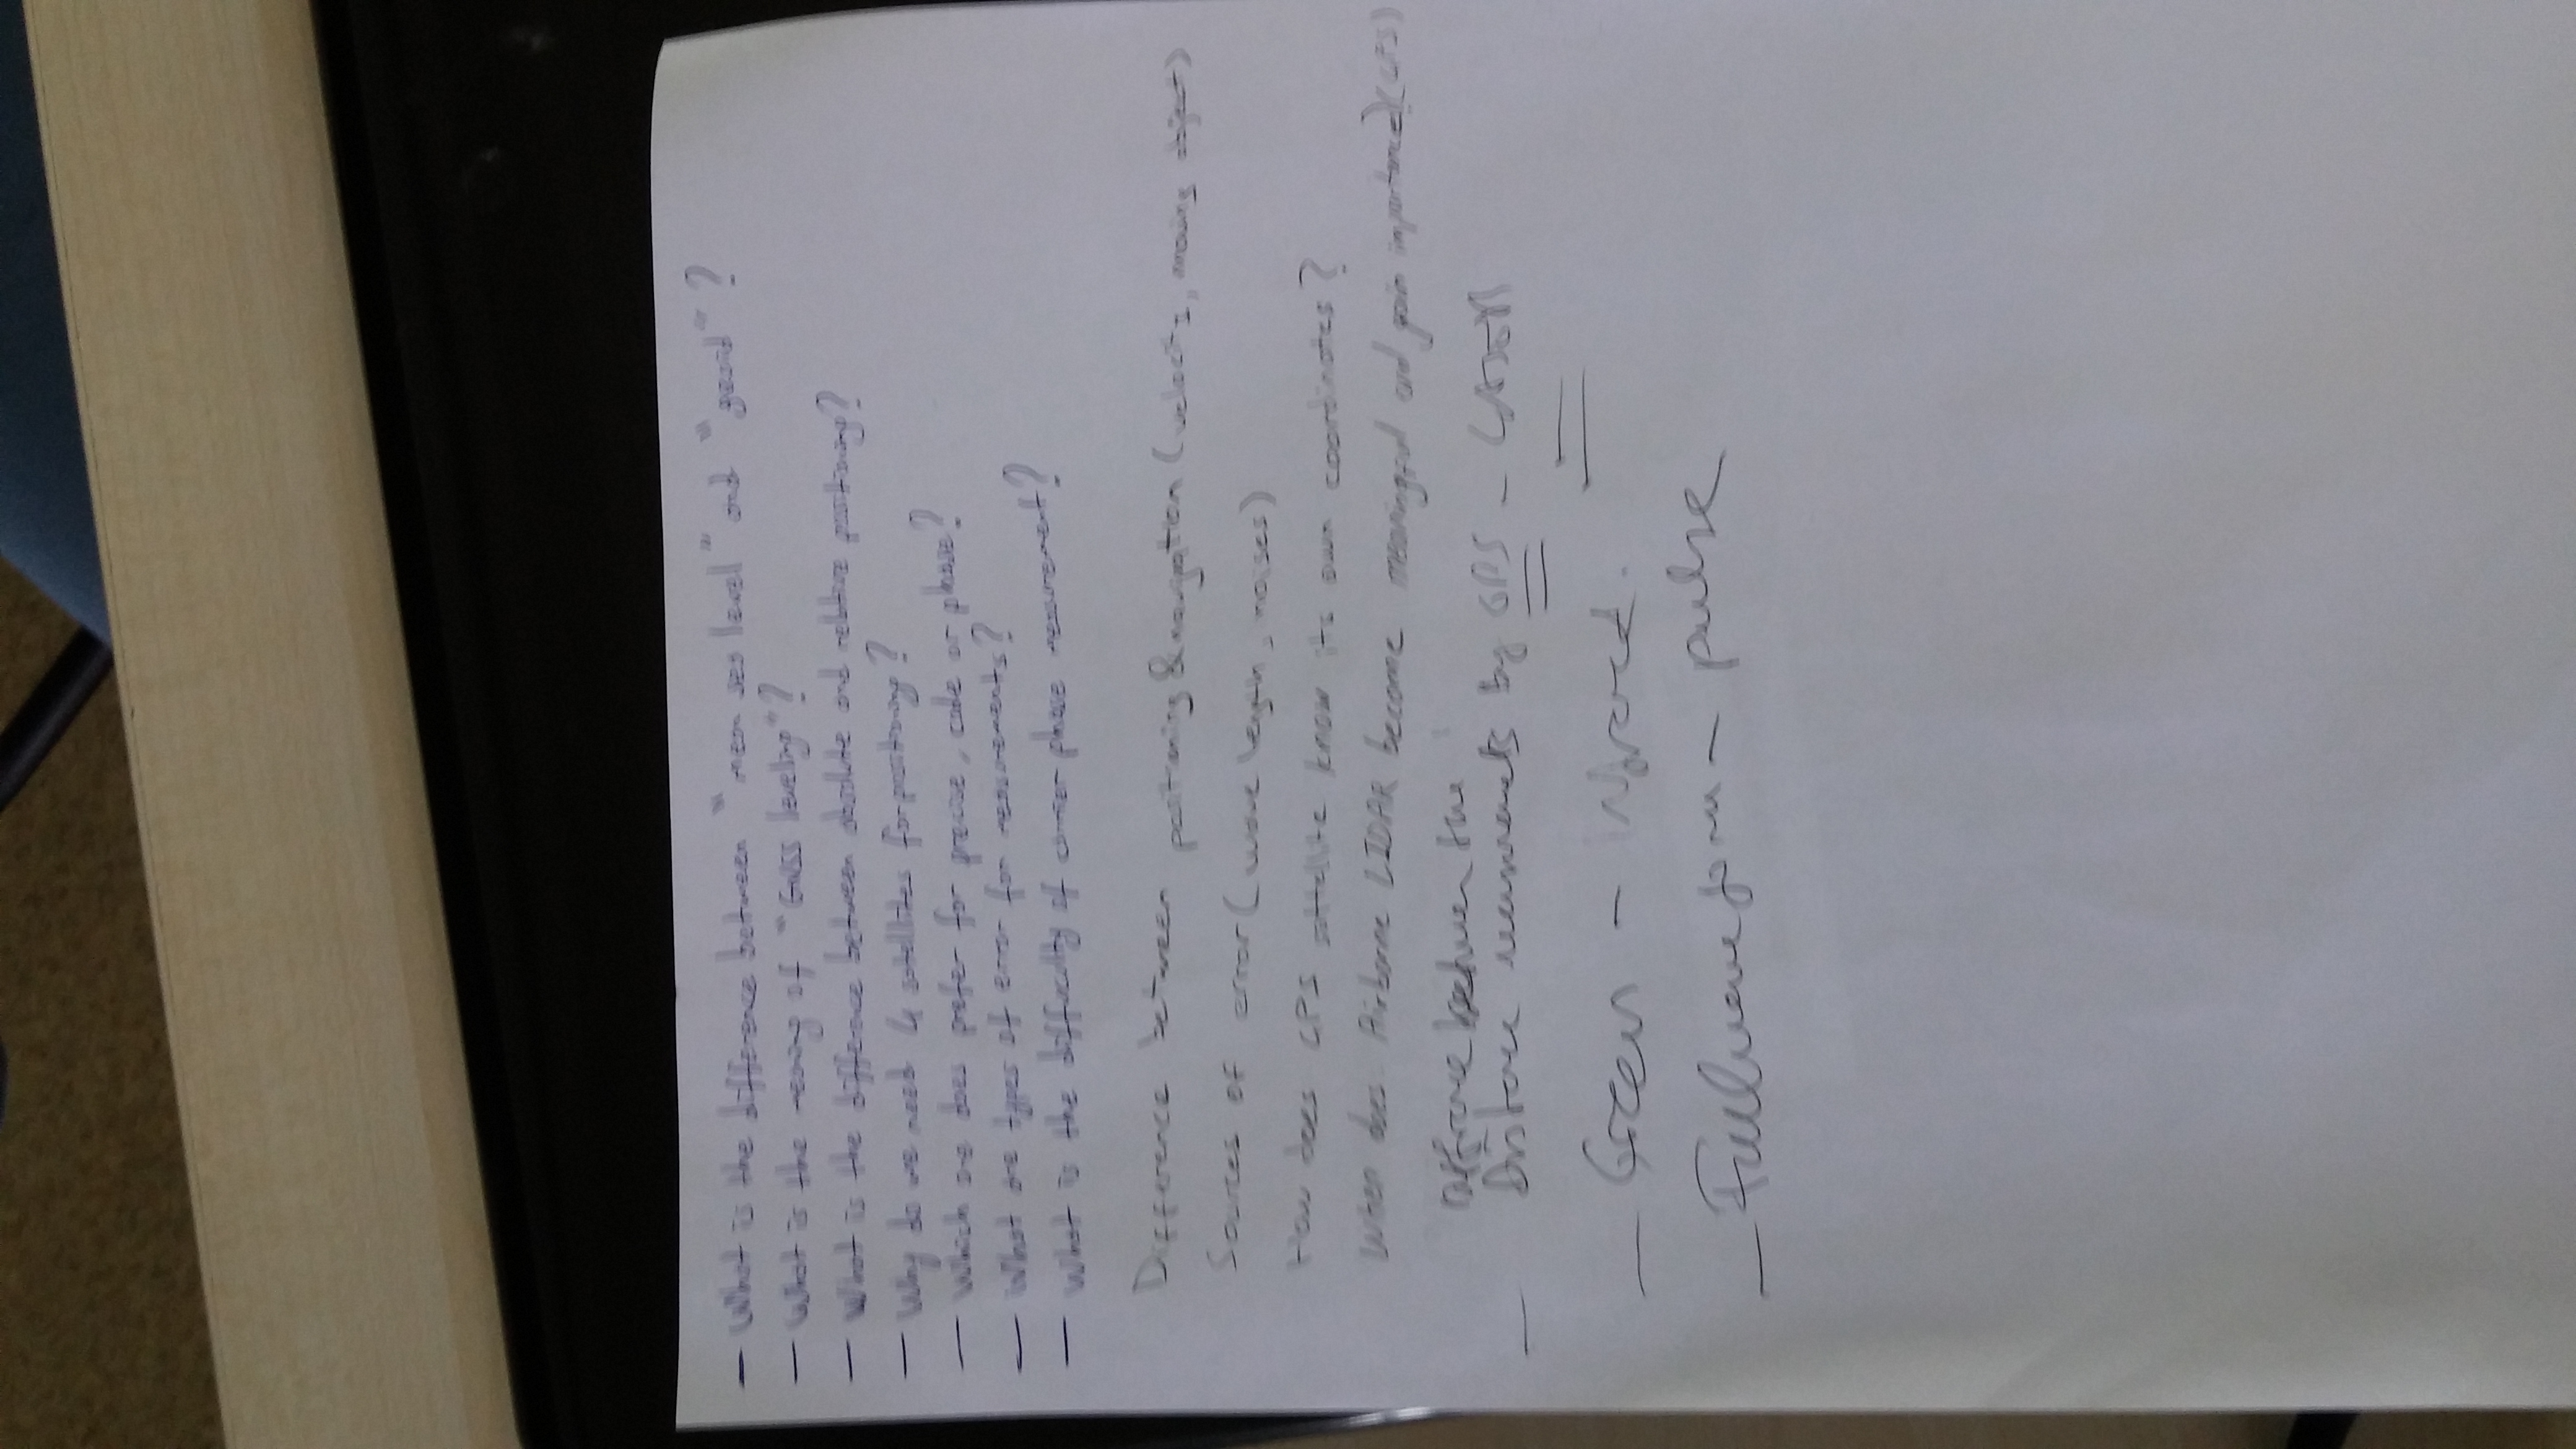 - What is the difference between "mean sea level" and "geoid"?
- What is the meaning of "GNSS leveling"?
- What is the difference between absolute and relative positioning?
- Why do we need 4 satellites for positioning?
- Which one does prefer for precise, code or phase?
- What are types of error for measurements?
- What is the diffuculty of carrier phase measurement?
Difference between positioning & navigation (velocity, moving object)
Sources of error (wave length, noises)
How does GPS sattellite know its own coordinates?
When does Airborne LIDAR become meaningful and gain importance? (GPS)
between the
- Distance by GPS -
- Green - infrared.
- Fullwaveform - pulse